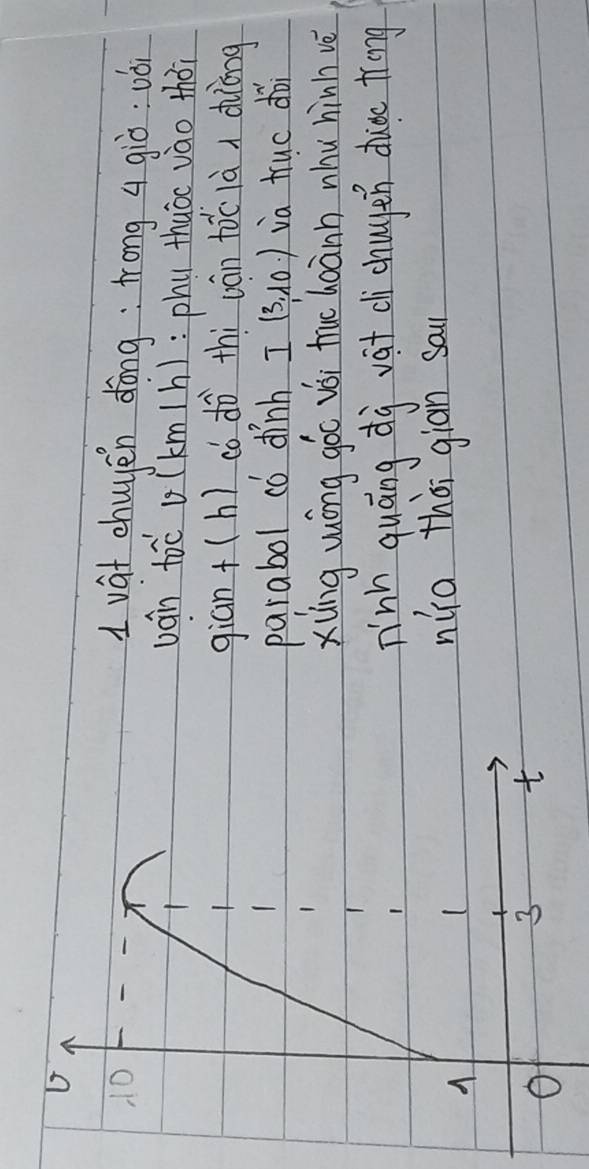 1 vật chuyển động . trong 4 giờ . với
vận tốc v (km/h) : phụ thuộc vào thời
gian t (h) có đồ thị vận tốc là 1 đường
parabol có đỉnh I (3,10.) và trục đối
xứng vuông góc với trục hoành như hình vẽ
Tính quãng đg vật di chuyển được trong
nửa thời gian sau
v
10
1
0
3
t